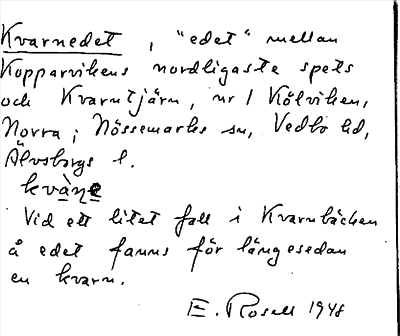 Kvarnedet, "edet" mellan
Kopparvikens nordligaste spets
och Kvarntjärn, nr 1 Kölviken,
Norra; Nössemarks sn, Vedbo hd,
Älvsborgs l.
kvàṇe
Vid ett litet fall i Kvarnbäcken
å edet fanns för längesedan
en kvarn.
E. Rosell 1948